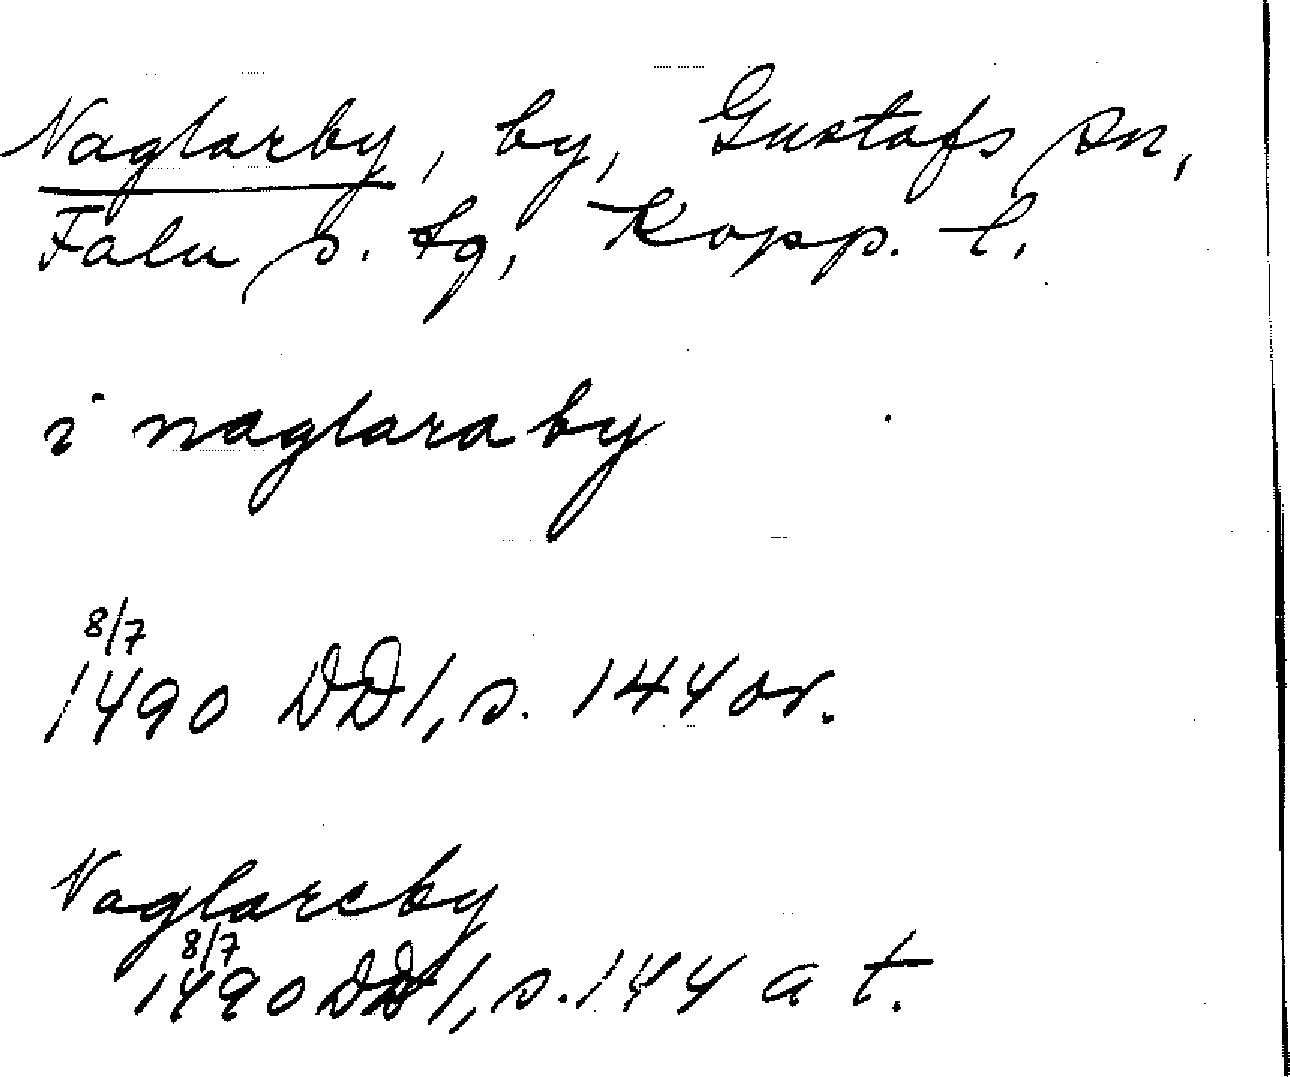 Naglarby, by, Gustafs sn,
Falu s. tg, Kopp. l.
i naglara by
8/7
1490 DD1, s. 144 or.
Naglareby
8/7
1490 DD1, s. 144 a t.